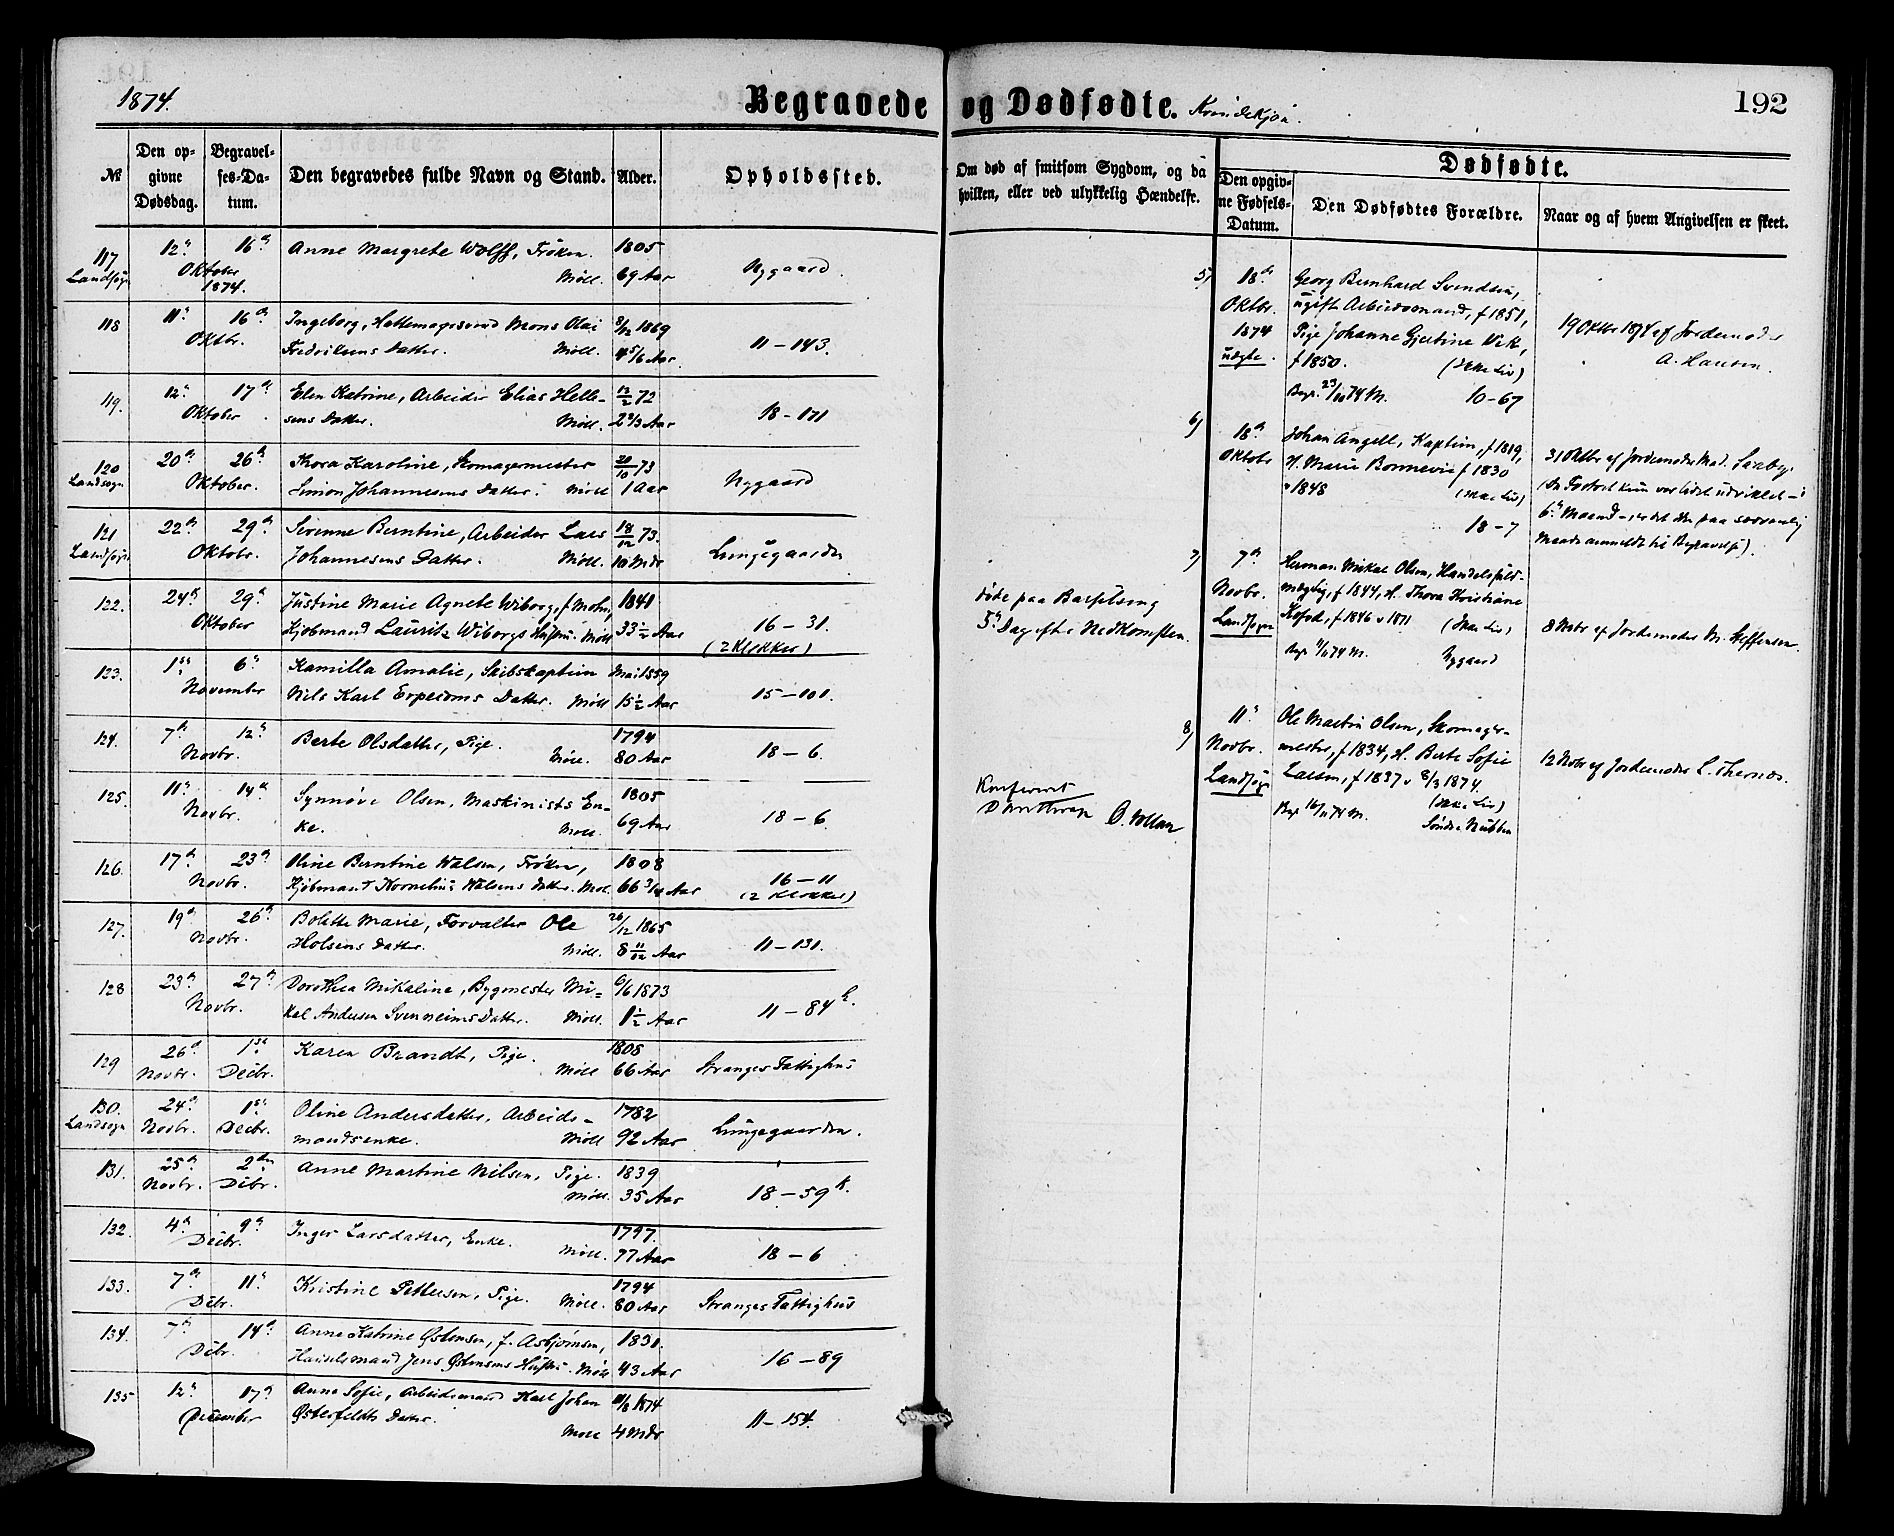 1874.
Begravede og Dødfødte. Kvindekjøn.
192
№
Den opgivne Dødsdag.
Begravelses-Datum.
Den begravedes fulde Navn og Stand.
Alder.
Opholdssted.
Om død af smitsom Sygdom, og da
hvilken, eller ved ulykkelig Hændelse.
Dødfødte.
Den opgivne Fødsels-Datum.
Den Dødfødtes Forældre.
Naar og af hvem Angivelsen er skeet.
117 12te 16de Anne Margrete Wolff, Frøken. 1805
Landsogn Oktober 1874. Møll. 69 Aar Nygaard.
118 11te 16de Ingeborg, Hattemagersvend Mons Olai 8/12 1869
Oktbr. Fredriksens Datter. Møll. 4 5/6 Aar 11 – 143.
119. 12te 17de Elen Katrine, Arbeider Elias Helle- 12/2 72
Oktober sens Datter. Møll. 2 2/3 Aar 18 – 171
120 20de 26de Thora Karoline, Skomagermester 20/10 73
Landsogn Oktober. Simon Johannesens Datter. Møll 1 Aar Nygaard
121 22de 29de Serenne Berntine, Arbeider Lars 18/12 73.
Landsogn Oktobr. Johannesens Datter. Møll. 10 Mdr Lungegaarden
122. 24de 29de Justine Marie Agnete Wiborg, f. Mohn, 1841
Oktober Kjøbmand Lauritz Wiborgs Hustru. Møll 33 1/2 Aar 16 – 31.
(2 Klokker)
døde paa Barselseng
5te Dag efter Nedkomsten.
123. 1ste 6te Kamilla Amalie, Skibskaptein Mai 1859
November Nils Karl Erpecoms Datter. Møll 15 1/2 Aar 15 – 101.
124. 7de 12te Berte Olsdatter, Pige. 1794
Novbr. Møll. 80 Aar 18 – 6.
125. 11te 14de Synnøve Olsen, Maskinists En- 1805
Novbr. ke. Møll. 69 Aar 18 – 6.
Konfereret
O. Vollan
126. 17de 23de Oline Berntine Walsen, Frøken, 1808
Novbr. Kjøbmand Kornelius Walsens Datter. Møl. 66 3/12 Aar 16 – 11
(2 Klokker)
127. 19de 26de Bolette Marie, Forvalter Ole 26/12 1865
Novbr. Holsens Datter. Møll. 8 11/12 Aar 11 – 131.
128 23de 27de Dorothea Mikaline, Bygmester Mi- 6/6 1873
Novbr. kal Andersen Svenneims Datter. Møll. 1 1/2 Aar 11 – 84
129 26de 1ste Karen Brandt, Pige. 1808
Novbr. Decbr. Møll 66 Aar Stranges Fattighus
130. 24de 1ste Oline Andersdatter, Arbeids- 1782
Landsogn Novbr. Decbr. mandsenke. Møll 92 Aar Lungegaarden.
131. 25de 2den Anne Martine Nilsen, Pige. 1839
Novbr. Decbr. Møll. 35 Aar 18 – 59 k.
132. 4de 9de Inger Larsdatter, Enke. 1797.
Decbr. Møll. 77 Aar 18 – 6
133. 7de 11te Kristine Pettersen, Pige. 1794
Debr. Møll. 80 Aar Stranges Fattighus
134. 7de 14de Anne Katrine Østensen, f. Asbjørnsen, 1831.
Debr. Handelsmand Jens Østensens Hustru. Møll 43 Aar 16 – 89
135 12te 17de Anna Sofie, Arbeidsmand Karl Johan 11/8 1874
December Østerfeldts Datter. Møll 4 Mdr 11 – 154.
5) 18de Georg Bernhard Svendsen,
Oktbr. ugift Arbeidsmand, f 1851,
1874 Pige Johanne Gjertine Vik, 19 Oktbr 1874 af Jordemoder
uægte. f 1850. (Ikke Liv) A. Hansen.
Begr. 23/10 74 M. 10–67
6) 18de Johan Angell, Kaptein, f 1819,
Oktobr H. Marie Bonnevie f 1830 31 Oktbr af Jordemoder Mad. Saaby
v 1848 (Ikke Liv) (da Fostret kun var lidet udviklet –
18 – 7 6te Maaned – er det ikke paa sædvanlig
Maade anmeldt til Begravelse).
7) 7de Herman Mikal Olsen, Handelsfuld-
Novbr. mægtig, f 1844, H. Thora Kristiane
Landsogn f 1846 v 1871 (Ikke Liv) 8 Nobr af Jordemoder M. Steffensen.
Begr 11/11 74 M. Nygaard
8) 11te Ole Martin Olsen, Skomager-
Novbr. mester, f 1834, H. Berte Sofie
Landsogn Larsen, f 1837 v 8/3 1874. 12 Nobr af Jordemoder L. Thornes.
(Ikke Liv)
Begr 16/11 74 M. Søndre Nubben